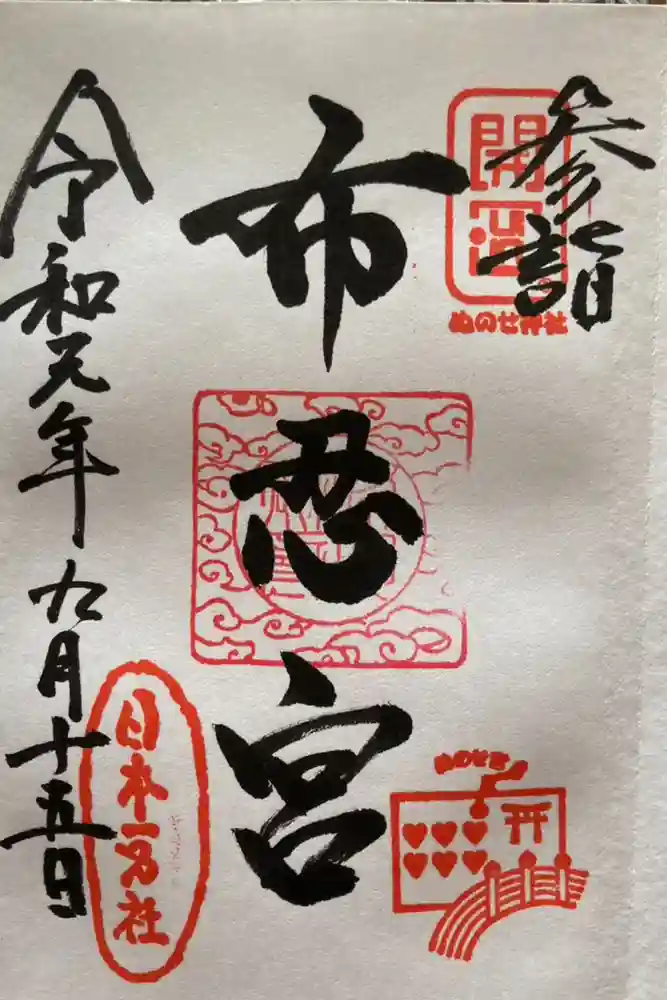 参詣
開
ぬのせ神社
布忍宮
日本一名社
令和元年九月十五日